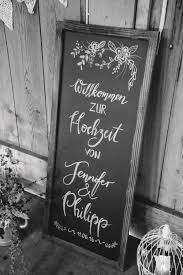 Willkommen
ZUR
Hochzeit
VON
Jennifer
&
Philipp